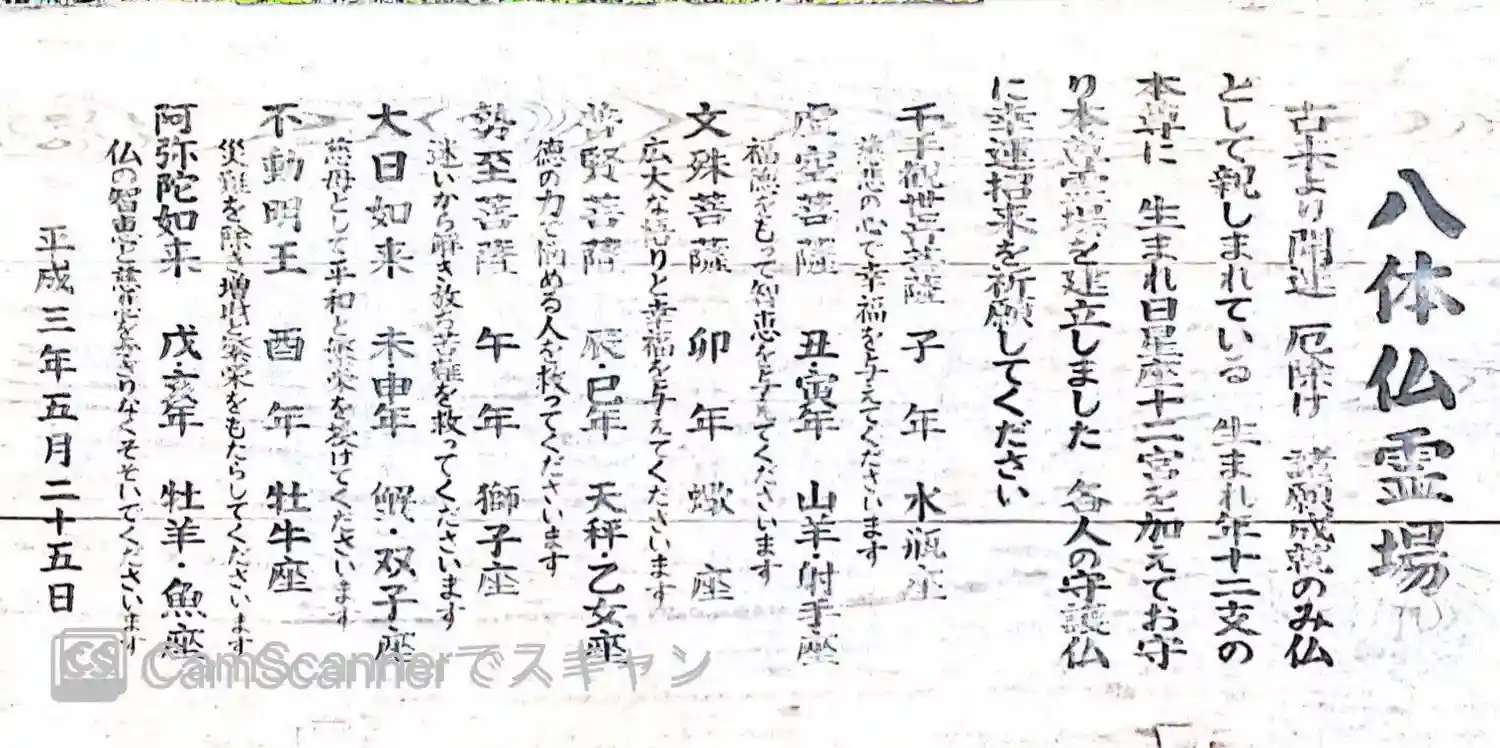 八体仏霊場
古来より開運 厄除け 諸願成就のみ仏
として親しまれている 生まれ年十二支の
本尊に 生まれ日星座十二宮を加えてお守
り本尊霊場を建立しました 各人の守護仏
に幸運招来を祈願してください
千手観世音菩薩 子年 水瓶座
慈悲の心で幸福を与えてくださいます
虚空菩薩 丑・寅年 山羊・射手座
福徳をもって智恵を与えてくださいます
文殊菩薩 卯年 蠍座
広大な悟りと幸福を与えてくださいます
普賢菩薩 辰・巳年 天秤・乙女座
徳の力で悩める人を救ってくださいます
勢至菩薩 午年 獅子座
迷いから解き放ち苦難を救ってくださいます
大日如来 未・申年 蟹・双子座
慈母として平和と繁栄を授けてくださいます
不動明王 酉年 牡牛座
災難を除き増益と繁栄をもたらしてくださいます
阿弥陀如来 戌・亥年 牡羊・魚座
仏の智恵と慈悲をかぎりなくそそいでくださいます
平成三年五月二十五日
CS CamScannerでスキャン